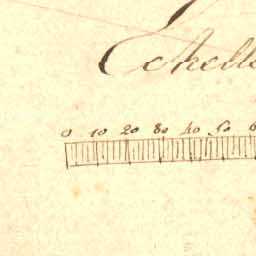 Echell
0 10 20 30 40 50 6